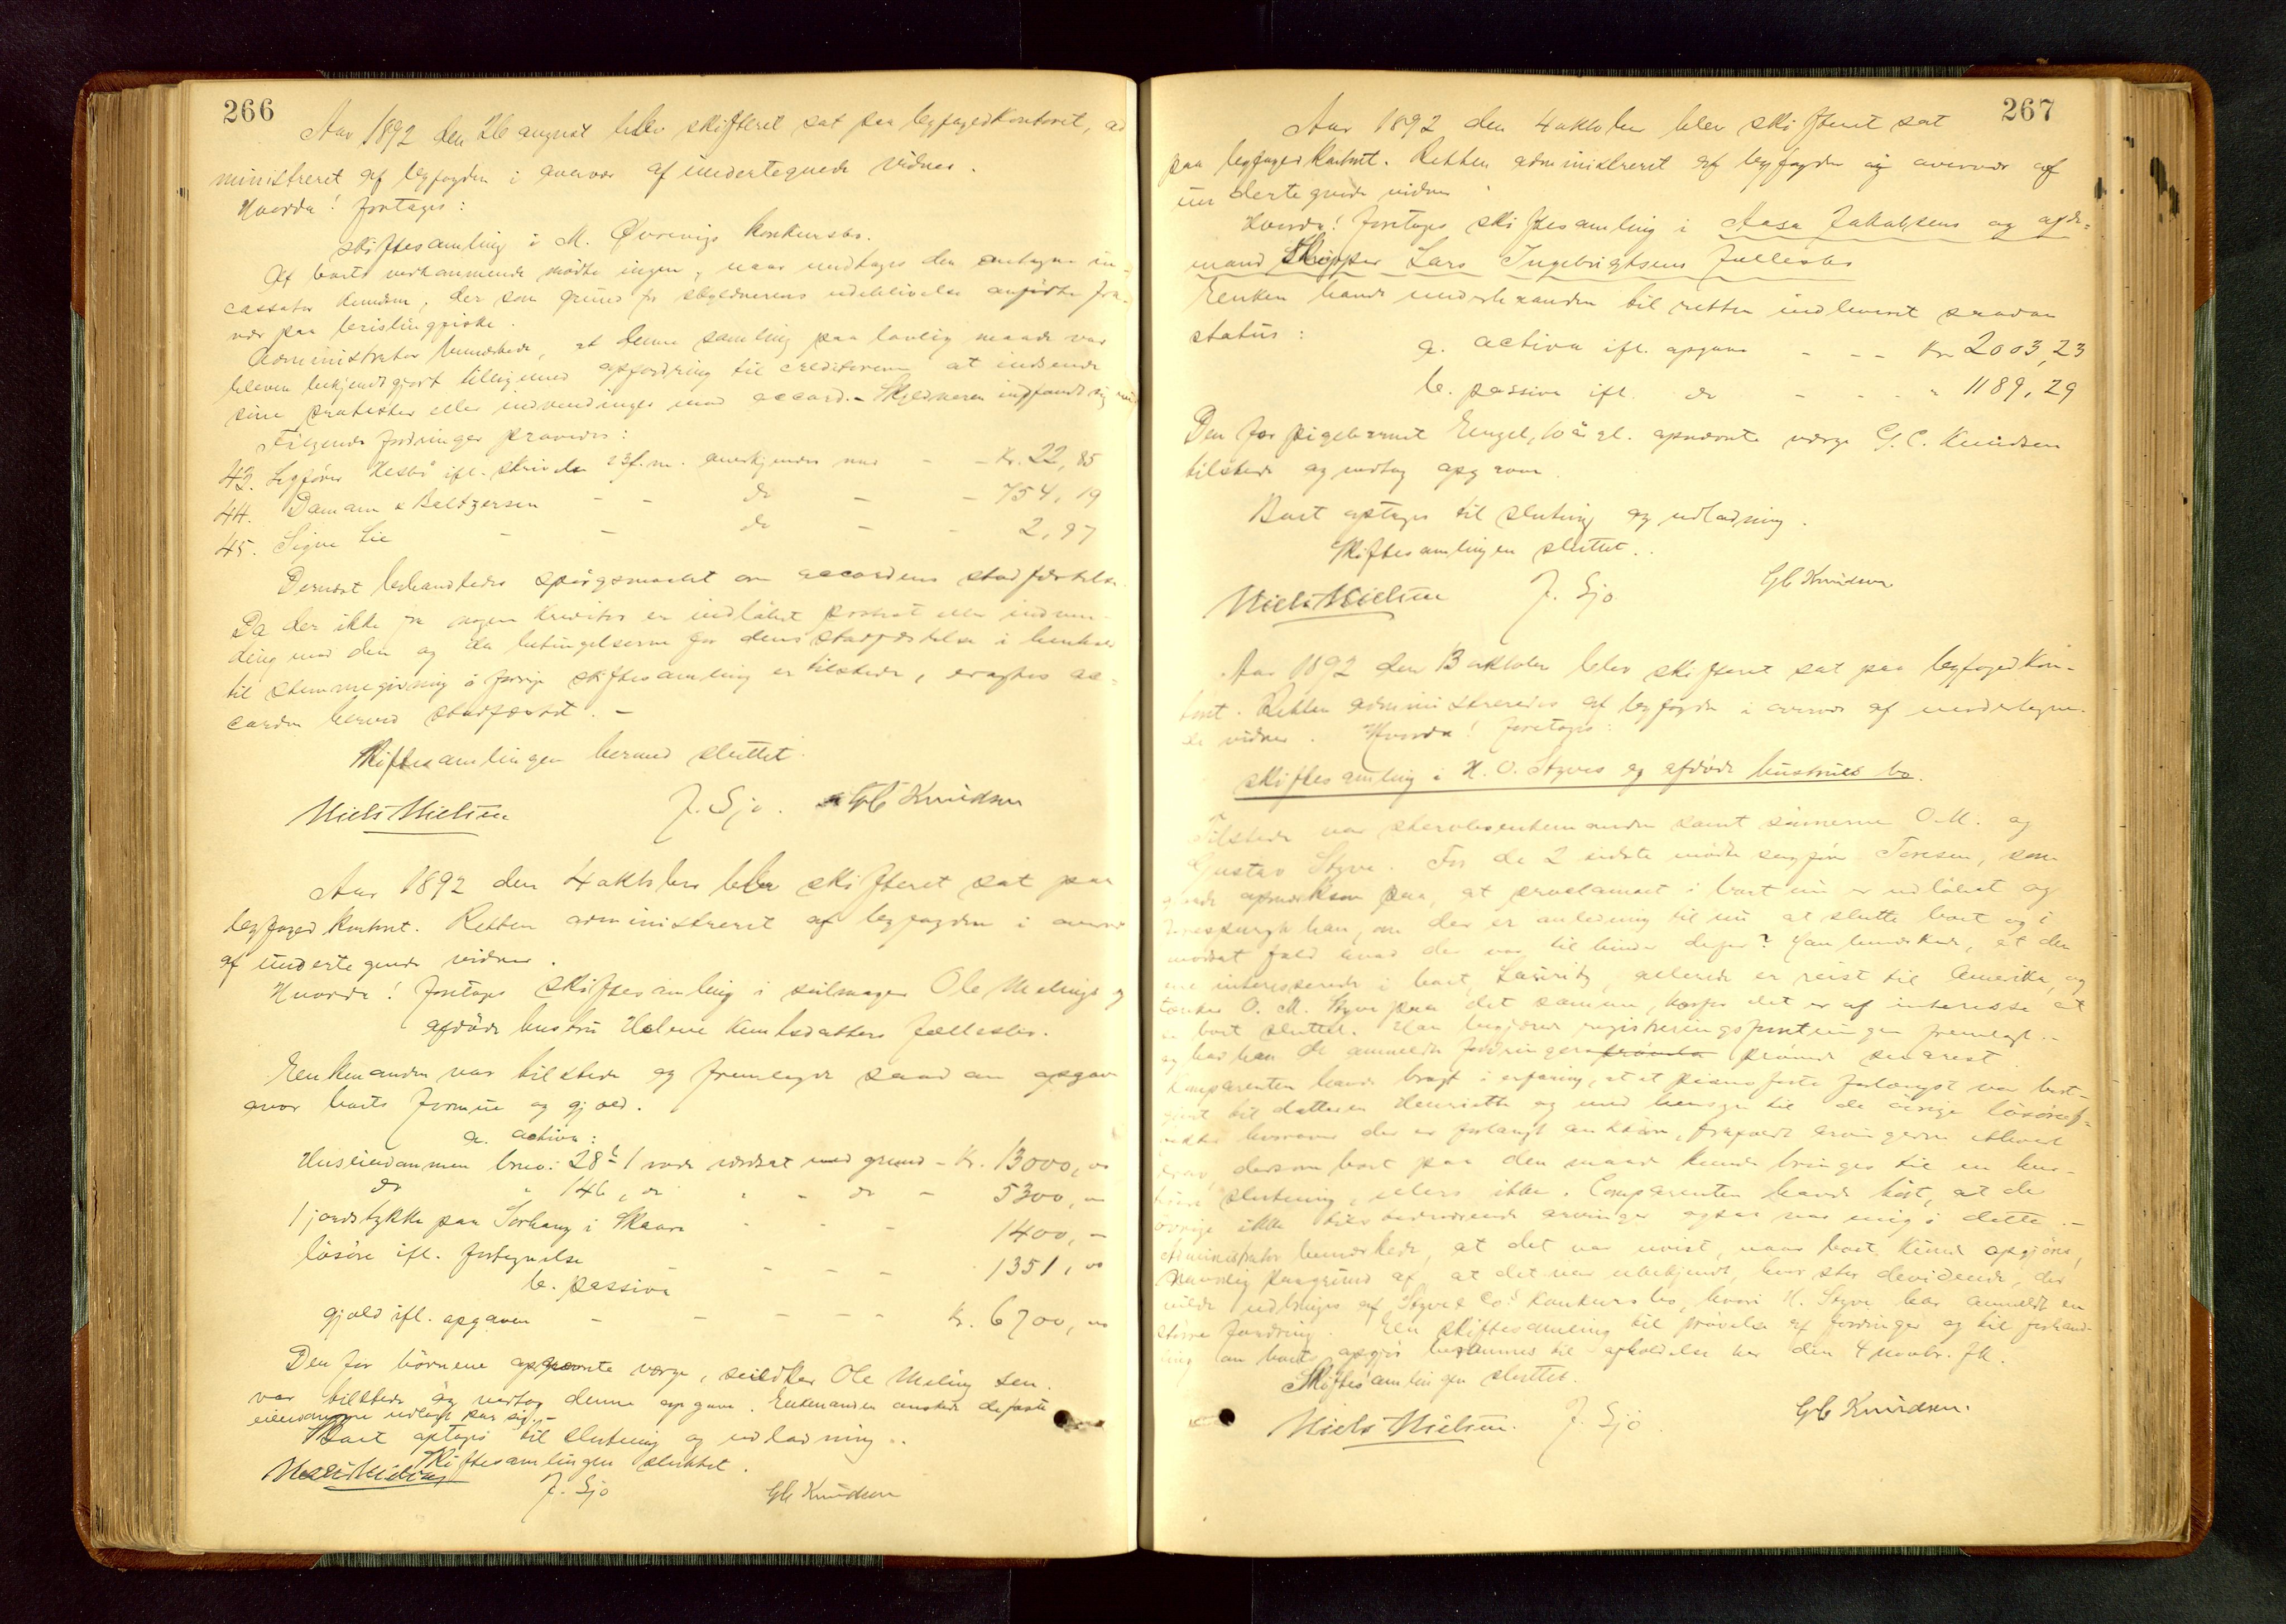 266
Aar 1892 den 26 august blev skifteret sat paa byfogedkontoret, ad
ministreret af byfogden i overvær af undertegnede vidner.
Hvorda! foretages:
skiftesamling i M. Øvrevigs konkursbo.
Af boets vedkommende mødte ingen, naar undtages den antagne in-
cassator Knudsen, der som grund for skyldnerens udeblivelse anførte fra-
vær paa brislingfiske.
Administrator bemærkede, at denne samling paa lovlig maade var
bleven bekjendtgjort tilligemed opfordring til creditorerne at indsende
sine protester eller indvendinger mod accord. - Skyldneren indfandt sig
Følgende fordringer prøvedes:
43. Sagfører Hesbø ifl. skrivelse 23 f.m. anerkjendes med - - Kr. 22,85
44. Damam & Baltzersen - - do - - 754,19
45. Signe Lie - - do - - 2,97
Dernæst behandledes spørgsmaalet om accordens stadfæstelse.
Da der ikke fra nogen kreditor er indløbet protest eller indven-
ding mod den og da betingelserne for dens stadfæstelse i henhold
til stemmegivning i forrige skiftesamling er tilstede, eragtes ac-
corden herved stadfæstet. -
Skiftesamlingen hermed sluttet.
Niels Nielsen J. Sjo. GC Knudsen
Aar 1892 den 4 oktober blev skifteret sat paa
byfogedkontoret. Retten administreret af byfogden i overvær
af undertegnede vidner.
Hvorda! foretages skiftesamling i seilmager Ole Melings og
afdøde hustru Helene Knudsdatters fællesbo.
Enkemanden var tilstede og fremlagde saadan opgave
over boets formue og gjæld.
a. activa:
Huseiendommen brno: 28 b 1 rode værdsat med grund - Kr. 13000,00
do " 146, do " - do - 5300,00
1 jordstykke paa Sørhaug i Skaare - - - 1400,-
løsøre ifl. fortegnelse - - - - 1351,00
b. passiva
gjæld ifl. opgaven - - - - - Kr. 6700,00
Den for børnene opnævnte værge, Ole Meling sen.
var tilstede og vedtog denne opgave. Enkemanden ønskede de faste
eiendomme udlagt paa sig. -
Boet optages til slutning og udlodning..
Skiftesamlingen sluttet.
Niels Nielsen J. Sjo GC Knudsen
267
Aar 1892 den 4 oktober blev skifteret sat
paa byfogedkontoret. Retten administreret af byfogden og overvær af
undertegnede vidner
Hvorda! foretages skiftesamling i Aasa Jakobsens og afdøde
mand Skipper Lars Ingebrigtsens fællesbo
Enken havde underhaanden til retten indleveret saadan
status:
a. activa ifl. opgave - - - Kr 2003,23
b. passiva ifl. do - - - " 1189,29
Den for pigebarnet Engel, 10 år gl. opnævnte værge G. C. Knudsen
tilstede og vedtog opgaven.
Boet optages til slutning og udlodning.
Skiftesamlingen sluttet..
Niels Nielsen J. Sjo GC Knudsen
Aar 1892 den 13 oktober blev skifteret sat paa byfogedkon-
toret. Retten administreredes af byfogden i overvær af undertegne-
de vidner. Hvorda! foretages:
skiftesamling i H. O. Styves og afdøde hustrues bo.
Tilstede var sterbosenkemanden samt sønnerne O. M. og
Gustav Styve. For de 2 sidste mødte sagfører Toresen, som
gjorde opmærksom paa, at proclamaet i boet nu er udløbet og
forespurgte han, om der er anledning til nu at slutte boet og i
modsat fald hvad der var til hinder derfor? Han bemærkede, at den
ene interesserede i boet, Lauritz, allerede er reist til Amerika, og
tænker O. M. Styve paa det samme, hvorfor det er af interesse at
se boet sluttet. Han begjærer registreringsforretningen fremlagt. -
og bad han de anmeldte fordringer prøvede snarest.
Komparenten havde bragt i erfaring, at et pianoforte forlængst var bort-
givet til datteren Henriette og med hensyn til de øvrige løsøreef-
fekter hvorover der er forlangt auktion, frafaldt arvingerne ethvert
krav, dersom boet paa den maade kunde bringes til en
slutning, ellers ikke. Comparenten havde hørt, at de
øvrige ikke tilstedeværende arvinger ogsaa var enig i dette. -
Administrator bemærkede, at det var uvist, naar boet kunde opgjøres,
navnlig paagrund af, at det var ubekjendt, hvor stor devidende, der
vilde udbringes af Styve & Co's konkursbo, hvori H. Styve har anmeldt en
større fordring. En skiftesamling til prøvelse af fordringer og til forhand-
ling om boets opgjør berammes til afholdelse her den 4 novbr. fk.
Skiftesamlingen sluttet.
Niels Nielsen. J. Sjo GC Knudsen.